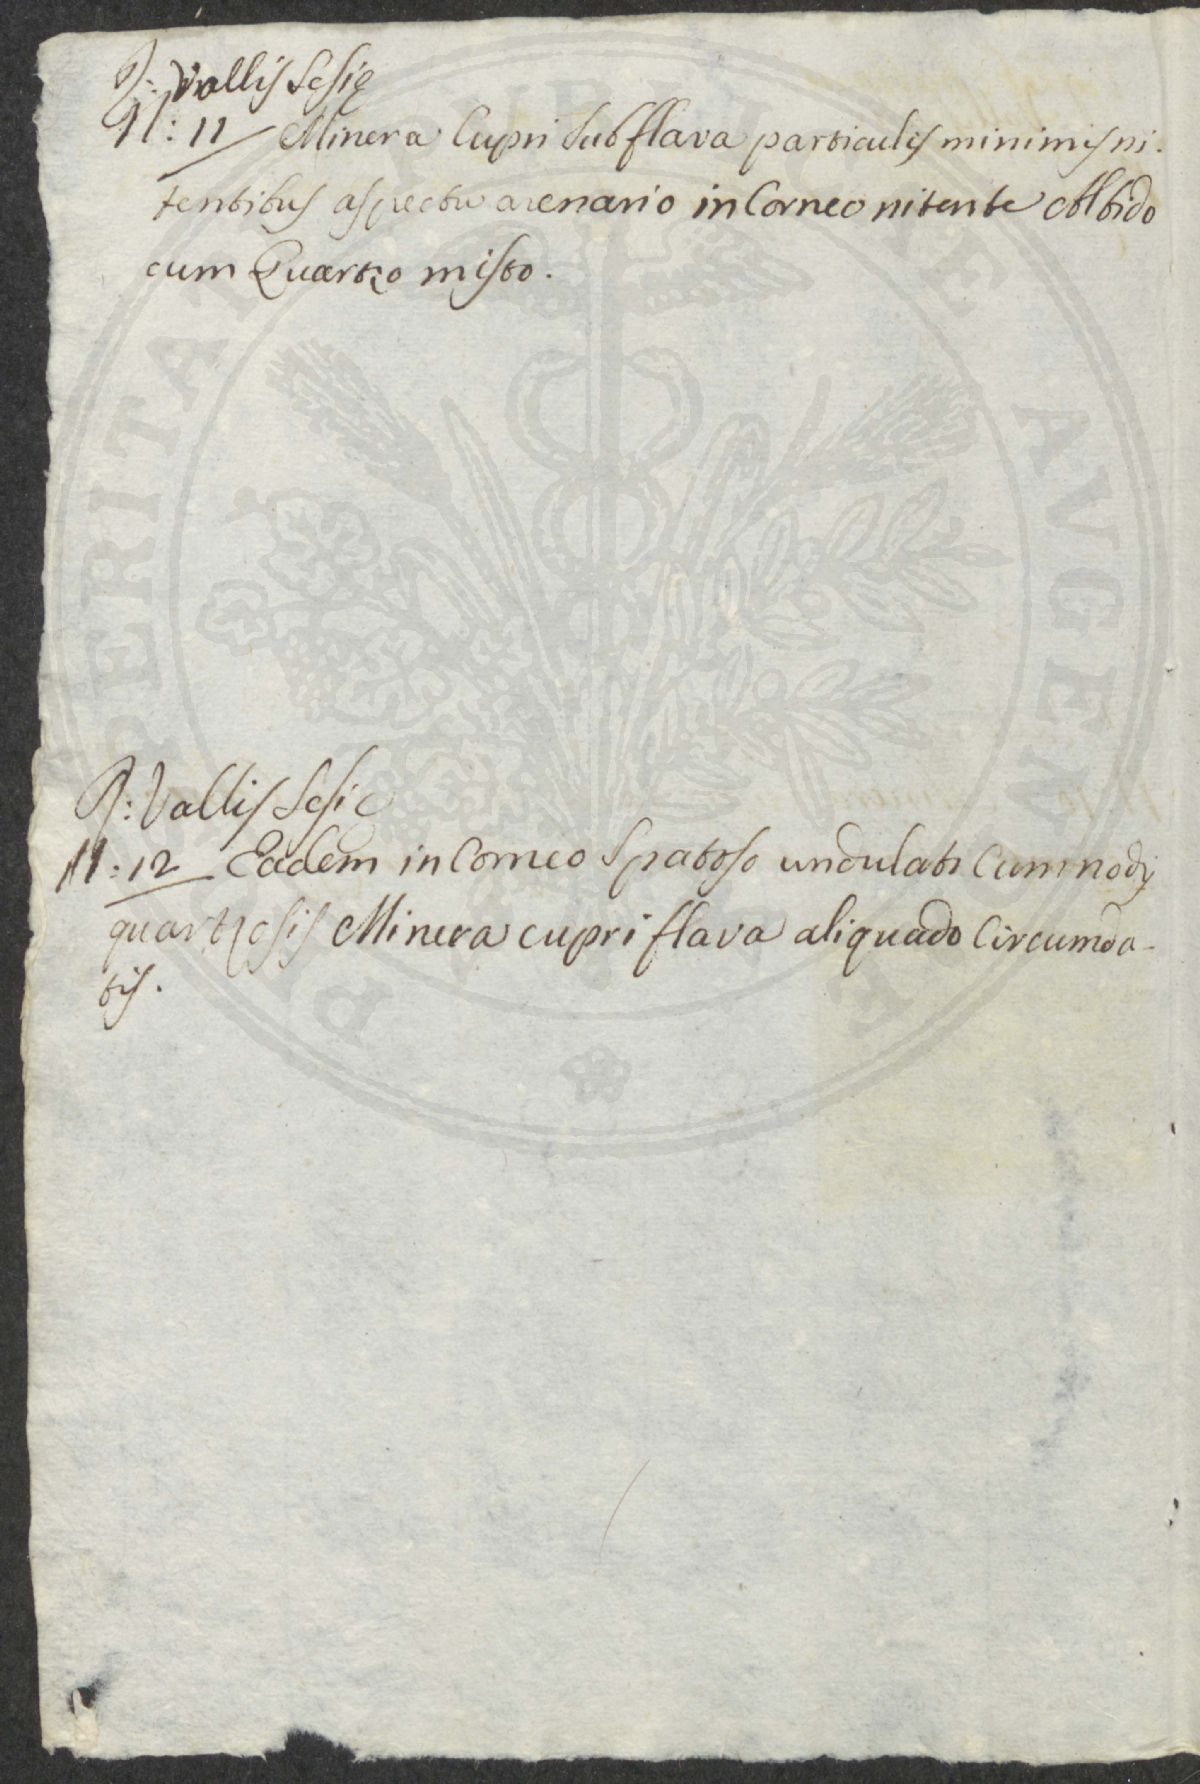 Vallis Sesię
N: 11 Minera Cupri Subflava particulis minimis ni-
tentibus aspectu arenario in Corneo nitente Albido
cum Quartzo misto.
Vallis Sesię
N: 12 Eadem in Corneo Spatoso undulato Cum nodis
quartzosis Minera cupri flava aliquado Circumda-
tis.